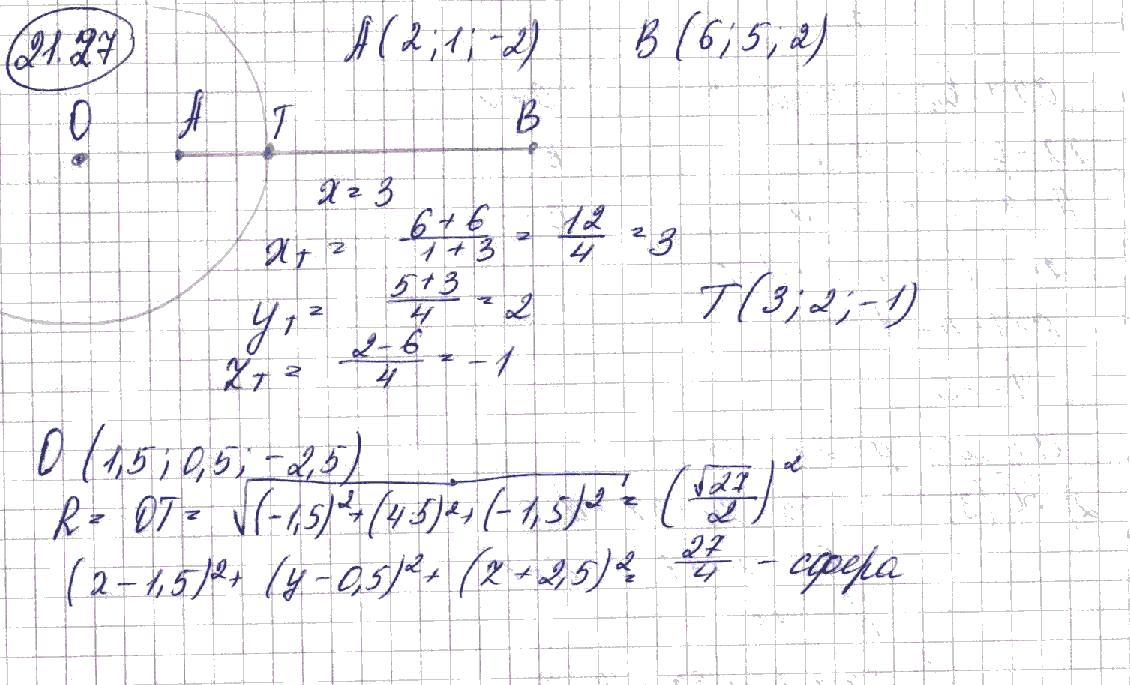 21.27 A(2;1;-2) B(6;5;2)
O A T B
x = 3
x_T = \frac{6+6}{1+3} = \frac{12}{4} = 3
y_T = \frac{5+3}{4} = 2 T(3;2;-1)
z_T = \frac{2-6}{4} = -1
O(1,5;0,5;-2,5)
R = OT = \sqrt{(-1,5)^2+(45)^2+(-1,5)^2} = (\frac{\sqrt{27}}{2})^2
(x-1,5)^2+(y-0,5)^2+(z+2,5)^2 = \frac{27}{4} - сфера